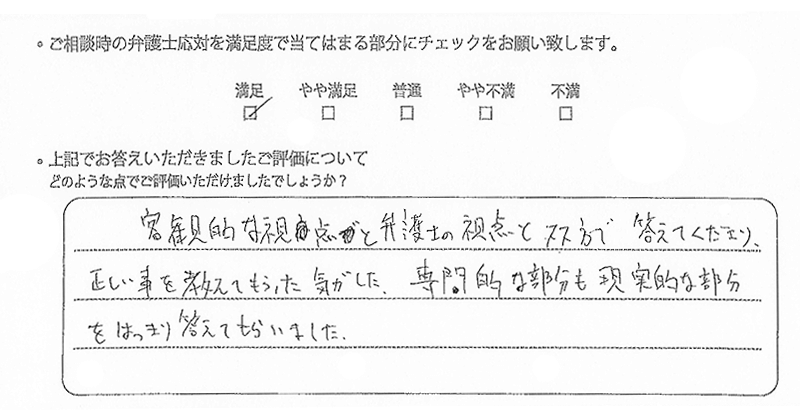 。ご相談時の弁護士応対を満足度で当てはまる部分にチェックをお願い致します。
満足 やや満足 普通 やや不満 不満
。上記でお答えいただきましたご評価について
どのような点でご評価いただけましたでしょうか?
客観的な視点と弁護士の視点と 方で 答えてくださり、
正しい事を教えてもらった気がした。専門的な部分も現実的な部分
をはっきり答えてもらいました。